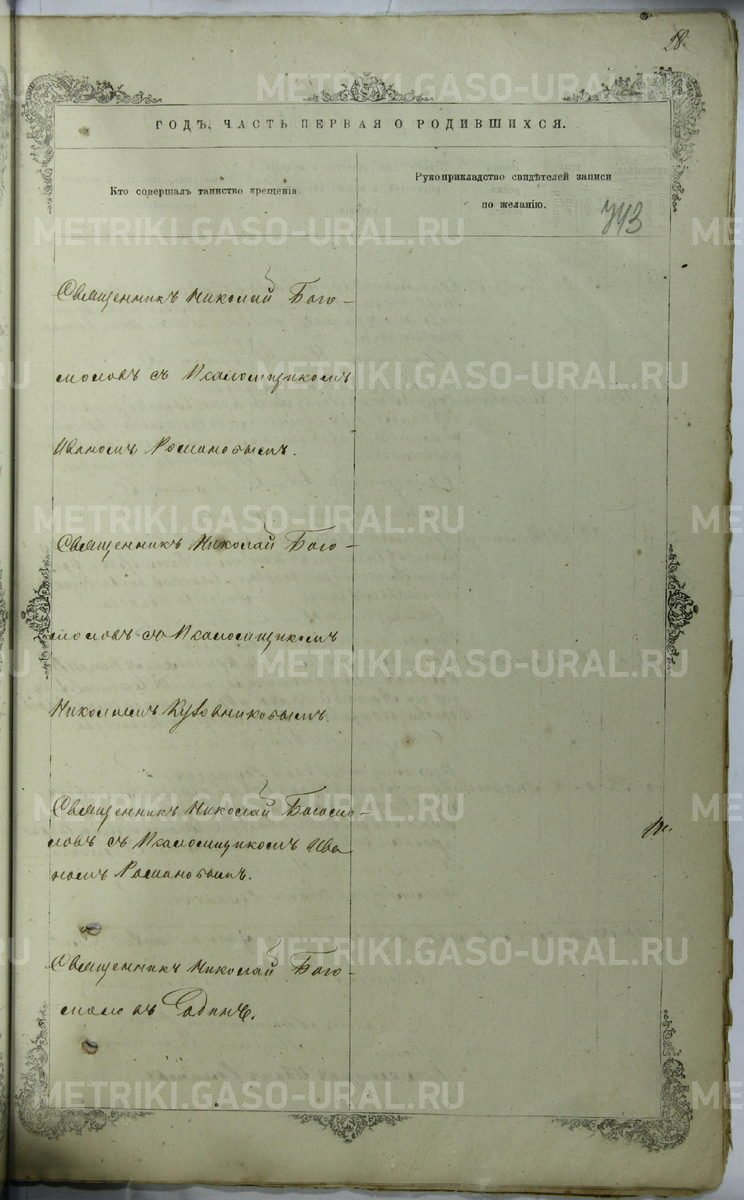 28.
ГОДЪ, ЧАСТЬ ПЕРВАЯ О РОДИВШИХСЯ.
Кто совершалъ таинство крещенія.
Рукоприкладство свидѣтелей записи
по желанію.
743
Священникъ Николай Бого-
моловъ съ Псаломщикомъ
Иваномъ Романовымъ.
Священникъ Николай Бого-
моловъ съ Псаломщикомъ
Николаемъ
Священникъ Николай Богомо-
ловъ съ Псаломщикомъ Ива
номъ Романовымъ.
Священникъ Николай Бого-
моловъ Единъ.
METRIKI.GASO-URAL.RU